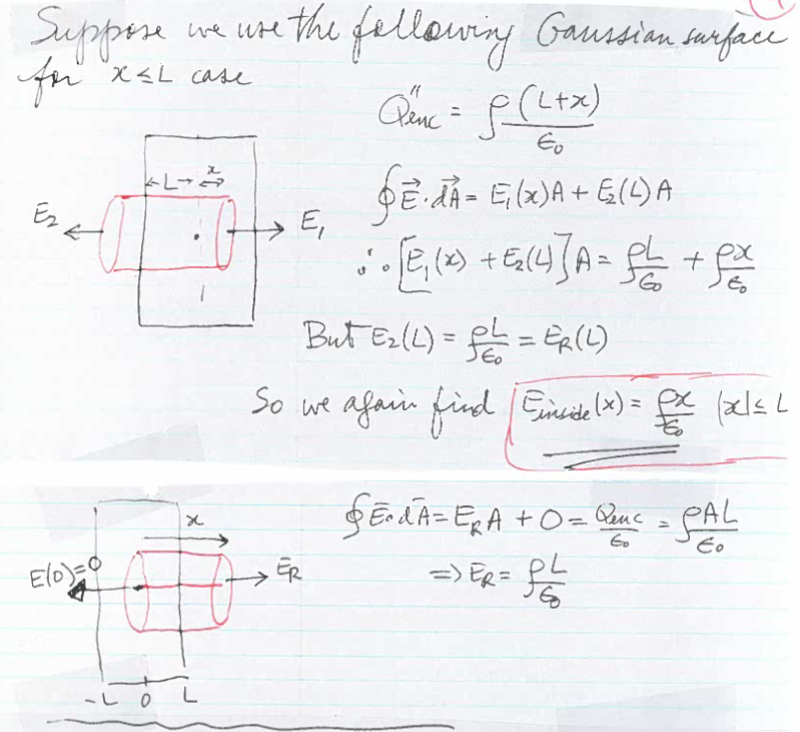 Suppose we use the following Gaussian surface
for x ≤ L case
"Qenc" = ρ(L+x)/ε₀
←L→ x
E₂ E₁
∮E⃗·dA⃗ = E₁(x)A + E₂(L)A
∴ [E₁(x) + E₂(L)]A = ρL/ε₀ + ρx/ε₀
But E₂(L) = ρL/ε₀ = E_R(L)
So we again find E_inside(x) = ρx/ε₀ |x| ≤ L
x
∮Ē·dĀ = E_R A + 0 = Qenc/ε₀ = ρAL/ε₀
E(0)=0 Ē_R
⇒ E_R = ρL/ε₀
-L 0 L